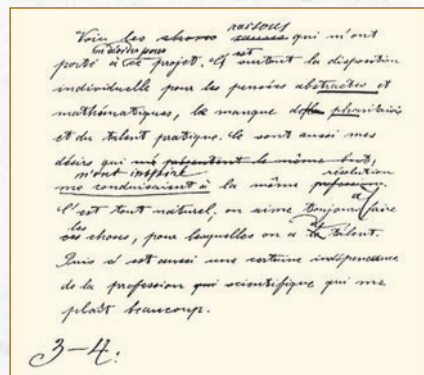 raisons
Voici les choses causes qui m'ont
porté à ce projet. C'est surtout la disposition
individuelle pour les pensées abstractes et
mathématiques, le manque de phantaisie
et du talent pratique. Ce sont aussi mes
désirs qui me présentent le même but,
m'ont inspiré résolution
me conduisaient à la même profession.
C'est tout naturel; on aime toujours à faire
les
ces choses, pour lesquelles on a le talent.
Puis c'est aussi une certaine indépendence
de la profession qui scientifique qui me
plaît beaucoup.
3-4.